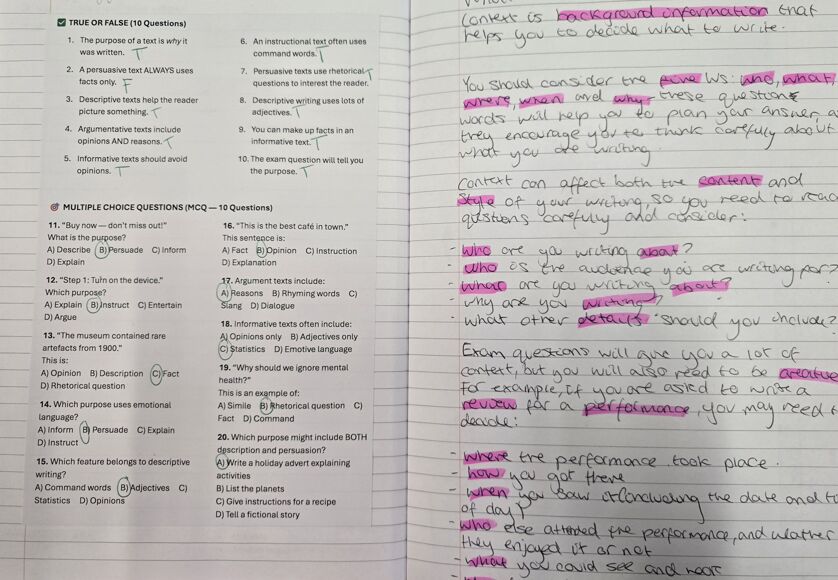 ✅ TRUE OR FALSE (10 Questions)
1. The purpose of a text is why it
was written. T
2. A persuasive text ALWAYS uses
facts only. F
3. Descriptive texts help the reader
picture something. T
4. Argumentative texts include
opinions AND reasons. T
5. Informative texts should avoid
opinions. T
6. An instructional text often uses
command words. T
7. Persuasive texts use rhetorical T
questions to interest the reader.
8. Descriptive writing uses lots of
adjectives. T
9. You can make up facts in an
informative text. T
10. The exam question will tell you
the purpose. T
🎯 MULTIPLE CHOICE QUESTIONS (MCQ — 10 Questions)
11. "Buy now — don't miss out!"
What is the purpose?
A) Describe B) Persuade C) Inform
D) Explain
12. "Step 1: Turn on the device."
Which purpose?
A) Explain B) Instruct C) Entertain
D) Argue
13. "The museum contained rare
artefacts from 1900."
This is:
A) Opinion B) Description C) Fact
D) Rhetorical question
14. Which purpose uses emotional
language?
A) Inform B) Persuade C) Explain
D) Instruct
15. Which feature belongs to descriptive
writing?
A) Command words B) Adjectives C)
Statistics D) Opinions
16. "This is the best café in town."
This sentence is:
A) Fact B) Opinion C) Instruction
D) Explanation
17. Argument texts include:
A) Reasons B) Rhyming words C)
Slang D) Dialogue
18. Informative texts often include:
A) Opinions only B) Adjectives only
C) Statistics D) Emotive language
19. "Why should we ignore mental
health?"
This is an example of:
A) Simile B) Rhetorical question C)
Fact D) Command
20. Which purpose might include BOTH
description and persuasion?
A) Write a holiday advert explaining
activities
B) List the planets
C) Give instructions for a recipe
D) Tell a fictional story
Context is background information that
helps you to decide what to write.
You should consider the five Ws: who, what,
where, when and why - these question
words will help you to plan your answer, a
they encourage you to think carefully about
what you are writing.
Context can affect both the content and
style of your writing, so you need to read
questions carefully and consider:
- Who are you writing about?
- Who is the audience you are writing for?
- What are you writing about?
- why are you writing?
- what other details should you include?
Exam questions will give you a lot of
context, but you will also need to be creative
For example, if you are asked to write a
review for a performance, you may need t
decide:
- where the performance took place.
- how you got there
- when you saw it (including the date and t
of day)
- who else attended the performance, and weather
they enjoyed it or not
- what you could see and hear